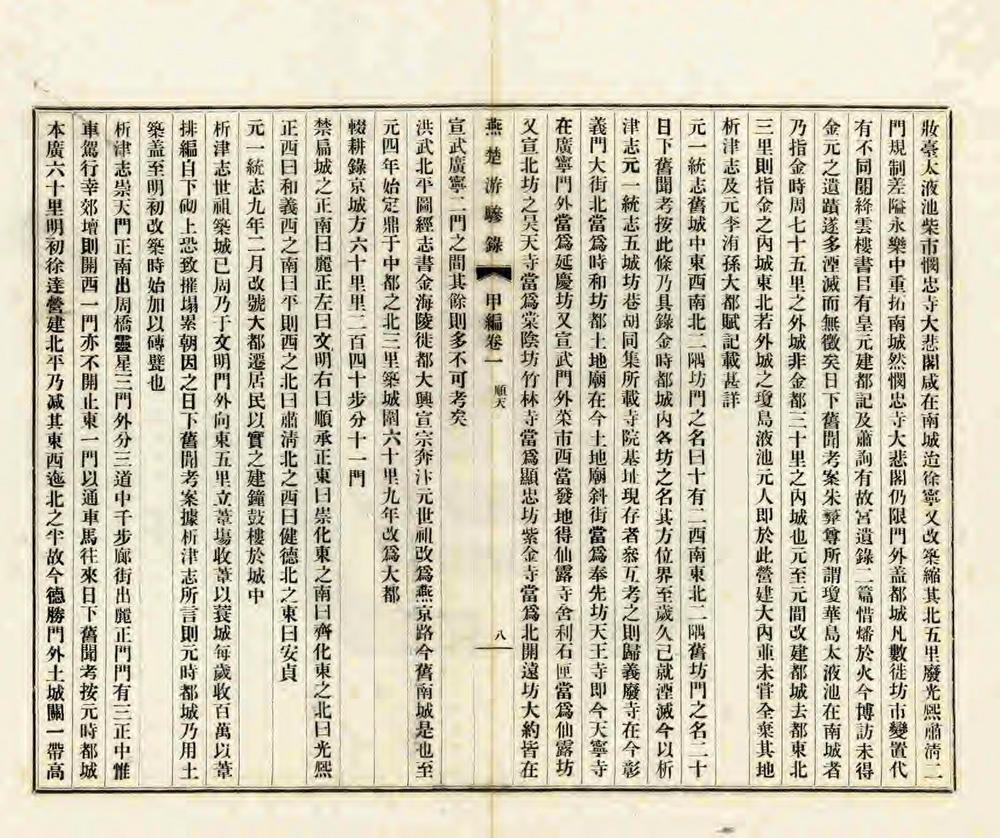 妝臺太液池柴市憫忠寺大悲閣咸在南城迨徐寧又改築縮其北五里廢光熙肅清二
門規制差隘永樂中重拓南城然憫忠寺大悲閣仍限門外蓋都城凡數徙坊市變置代
有不同關絳雲樓書目有皇元建都記及蕭詢有故宮遺錄二篇惜燔於火今博訪未得
金元之遺蹟遂多湮滅而無徵矣日下舊聞考案朱彝尊所謂瓊華島太液池在南城者
乃指金時周七十五里之外城非金都三十里之內城也元至元間改建都城去都東北
三里則指金之內城東北若外城之瓊島液池元人即於此營建大內亘未嘗全棄其地
析津志及元李洧孫大都賦記載甚詳
元一統志舊城中東西南北二隅坊門之名曰十有二西南東北二隅舊坊門之名二十
日下舊聞考按此條乃具錄金時都城內各坊之名其方位界至歲久已就湮滅今以析
津志元一統志五城坊巷胡同集所載寺院基址現存者叅互考之則歸義廢寺在今彰
義門大街北當爲時和坊都土地廟在今土地廟斜街當爲奉先坊天王寺即今天寧寺
在廣寧門外當爲延慶坊又宣武門外菜市西當發地得仙露寺舍利石匣當爲仙露坊
又宣北坊之昊天寺當爲棠陰坊竹林寺當爲顯忠坊紫金寺當爲北開遠坊大約皆在
燕楚游驂錄 甲編卷一 順天 八
宣武廣寧二門之間其餘則多不可考矣
洪武北平圖經志書金海陵徙都大興宣宗奔汴元世祖改爲燕京路今舊南城是也至
元四年始定鼎于中都之北三里築城圍六十里九年改爲大都
輟耕錄京城方六十里里二百四十步分十一門
禁扁城之正南曰麗正左曰文明右曰順承正東曰崇化東之南曰齊化東之北曰光熙
正西曰和義西之南曰平則西之北曰肅清北之西曰健德北之東曰安貞
元一統志九年二月改號大都遷居民以實之建鐘鼓樓於城中
析津志世祖築城已周乃于文明門外向東五里立葦場收葦以蓑城每歲收百萬以葦
排編自下砌上恐致摧塌累朝因之日下舊聞考案據析津志所言則元時都城乃用土
築蓋至明初改築時始加以磚甓也
析津志崇天門正南出周橋靈星三門外分三道中千步廊街出麗正門門有三正中惟
車駕行幸郊壇則開西一門亦不開止東一門以通車馬往來日下舊聞考按元時都城
本廣六十里明初徐達營建北平乃減其東西迤北之半故今德勝門外土城關一帶高